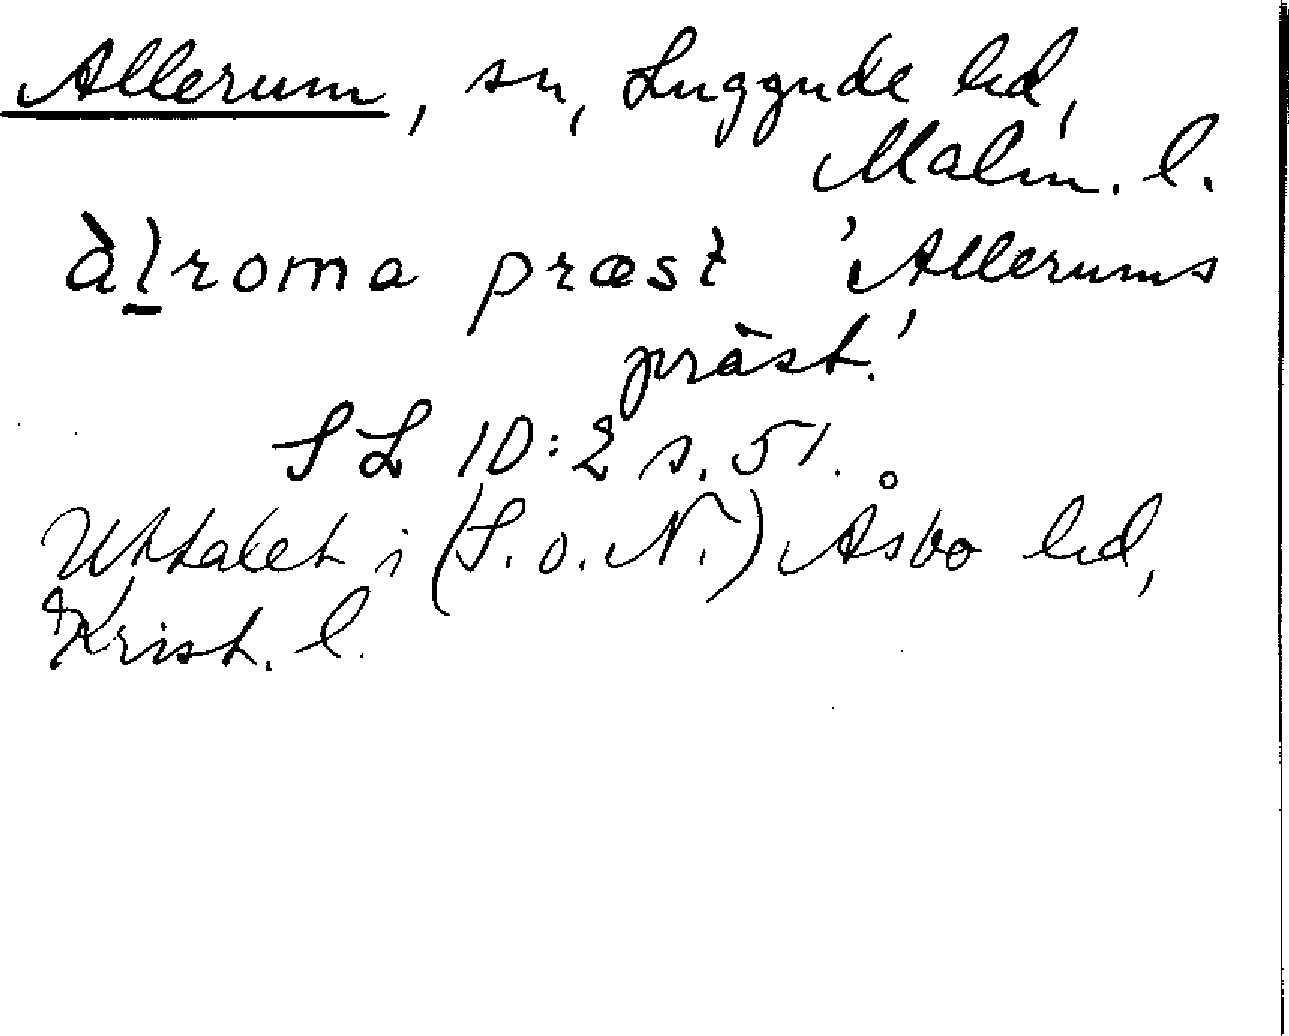 Allerum, sn, Luggude hd,
Malm. l.
àl̲roma præst 'Allerums
präst.'
SL 10:2 s. 51.
Uttalet i (S. o. N.) Åsbo hd,
Krist. l.